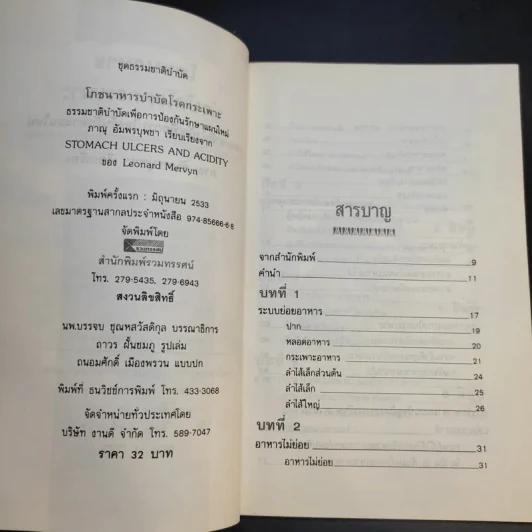 ชุดธรรมชาติบำบัด
โภชนาหารบำบัดโรคกระเพาะ
ธรรมชาติบำบัดเพื่อการป้องกันรักษาแผนใหม่
ภาณุ อัมพรบุพชา เรียบเรียงจาก
STOMACH ULCERS AND ACIDITY
ของ Leonard Mervyn
พิมพ์ครั้งแรก : มิถุนายน 2533
เลขมาตรฐานสากลประจำหนังสือ 974-85666-6-8
จัดพิมพ์โดย
รวมทรรศน์
สำนักพิมพ์รวมทรรศน์
โทร. 279-5435, 279-6943
สงวนลิขสิทธิ์
นพ.บรรจบ ชุณหสวัสดิกุล บรรณาธิการ
ถาวร ฝั้นชมภู รูปเล่ม
ถนอมศักดิ์ เมืองพรวน แบบปก
พิมพ์ที่ ธนวิชช์การพิมพ์ โทร. 433-3068
จัดจำหน่ายทั่วประเทศโดย
บริษัท งานดี จำกัด โทร. 589-7047
ราคา 32 บาท
สารบาญ
จากสำนักพิมพ์ 9
คำนำ 11
บทที่ 1
ระบบย่อยอาหาร 17
ปาก 19
หลอดอาหาร 20
กระเพาะอาหาร 21
ลำไส้เล็กส่วนต้น 24
ลำไส้เล็ก 25
ลำไส้ใหญ่ 26
บทที่ 2
อาหารไม่ย่อย 31
อาหารไม่ย่อย 31